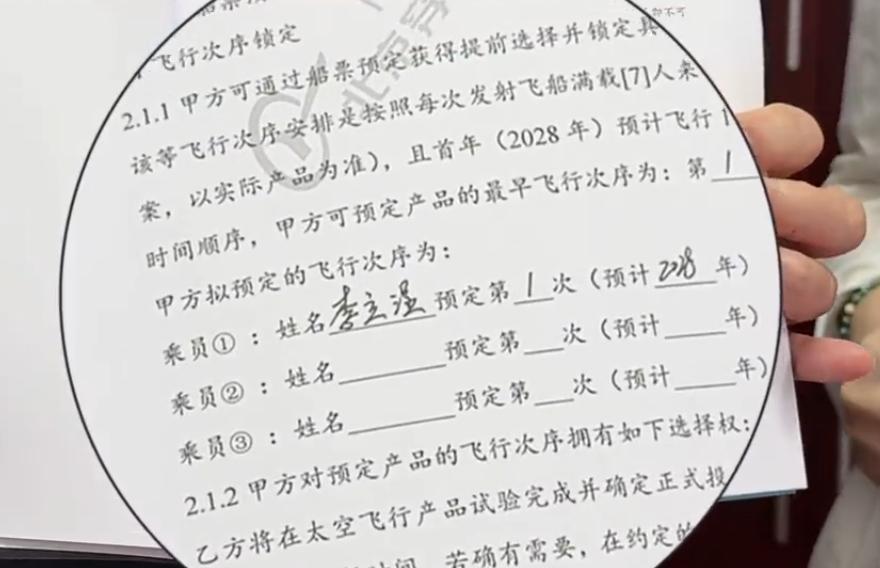 飞行次序锁定
2.1.1 甲方可通过船票预定获得提前选择并锁定具
该等飞行次序安排是按照每次发射飞船满载[7]人来
案，以实际产品为准），且首年（2028 年）预计飞行 1
时间顺序，甲方可预定产品的最早飞行次序为：第 1
甲方拟预定的飞行次序为：
乘员①：姓名李立强预定第 1 次（预计 2028 年）
乘员②：姓名______预定第__次（预计____年）
乘员③：姓名______预定第__次（预计____年）
2.1.2 甲方对预定产品的飞行次序拥有如下选择权：
乙方将在太空飞行产品试验完成并确定正式投
时间，若确有需要，在约定的